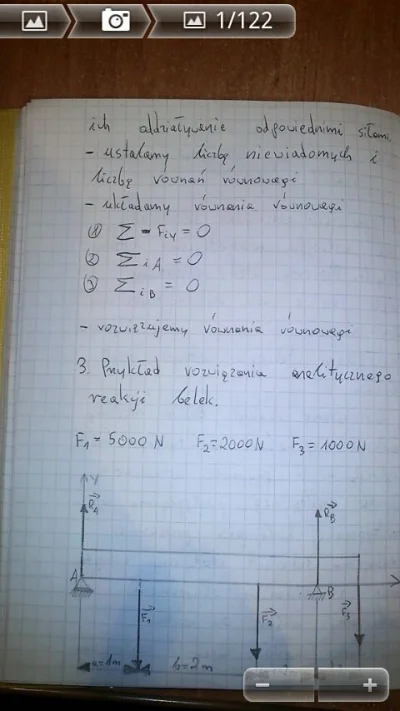 1/122
ich oddziaływanie odpowiednimi siłami
- ustalamy liczbę niewiadomych i
liczbę równań równowagi
- układamy równania równowagi
① Σ - Fiy = 0
② Σ iA = 0
③ Σ iB = 0
- rozwiązujemy równania równowagi
3. Przykład rozwiązania analitycznego
reakcji belek.
F1 = 5000 N F2 = 2000 N F3 = 1000 N
y
RA RB
A B
F1 F2 F3
a = 1m b = 2m